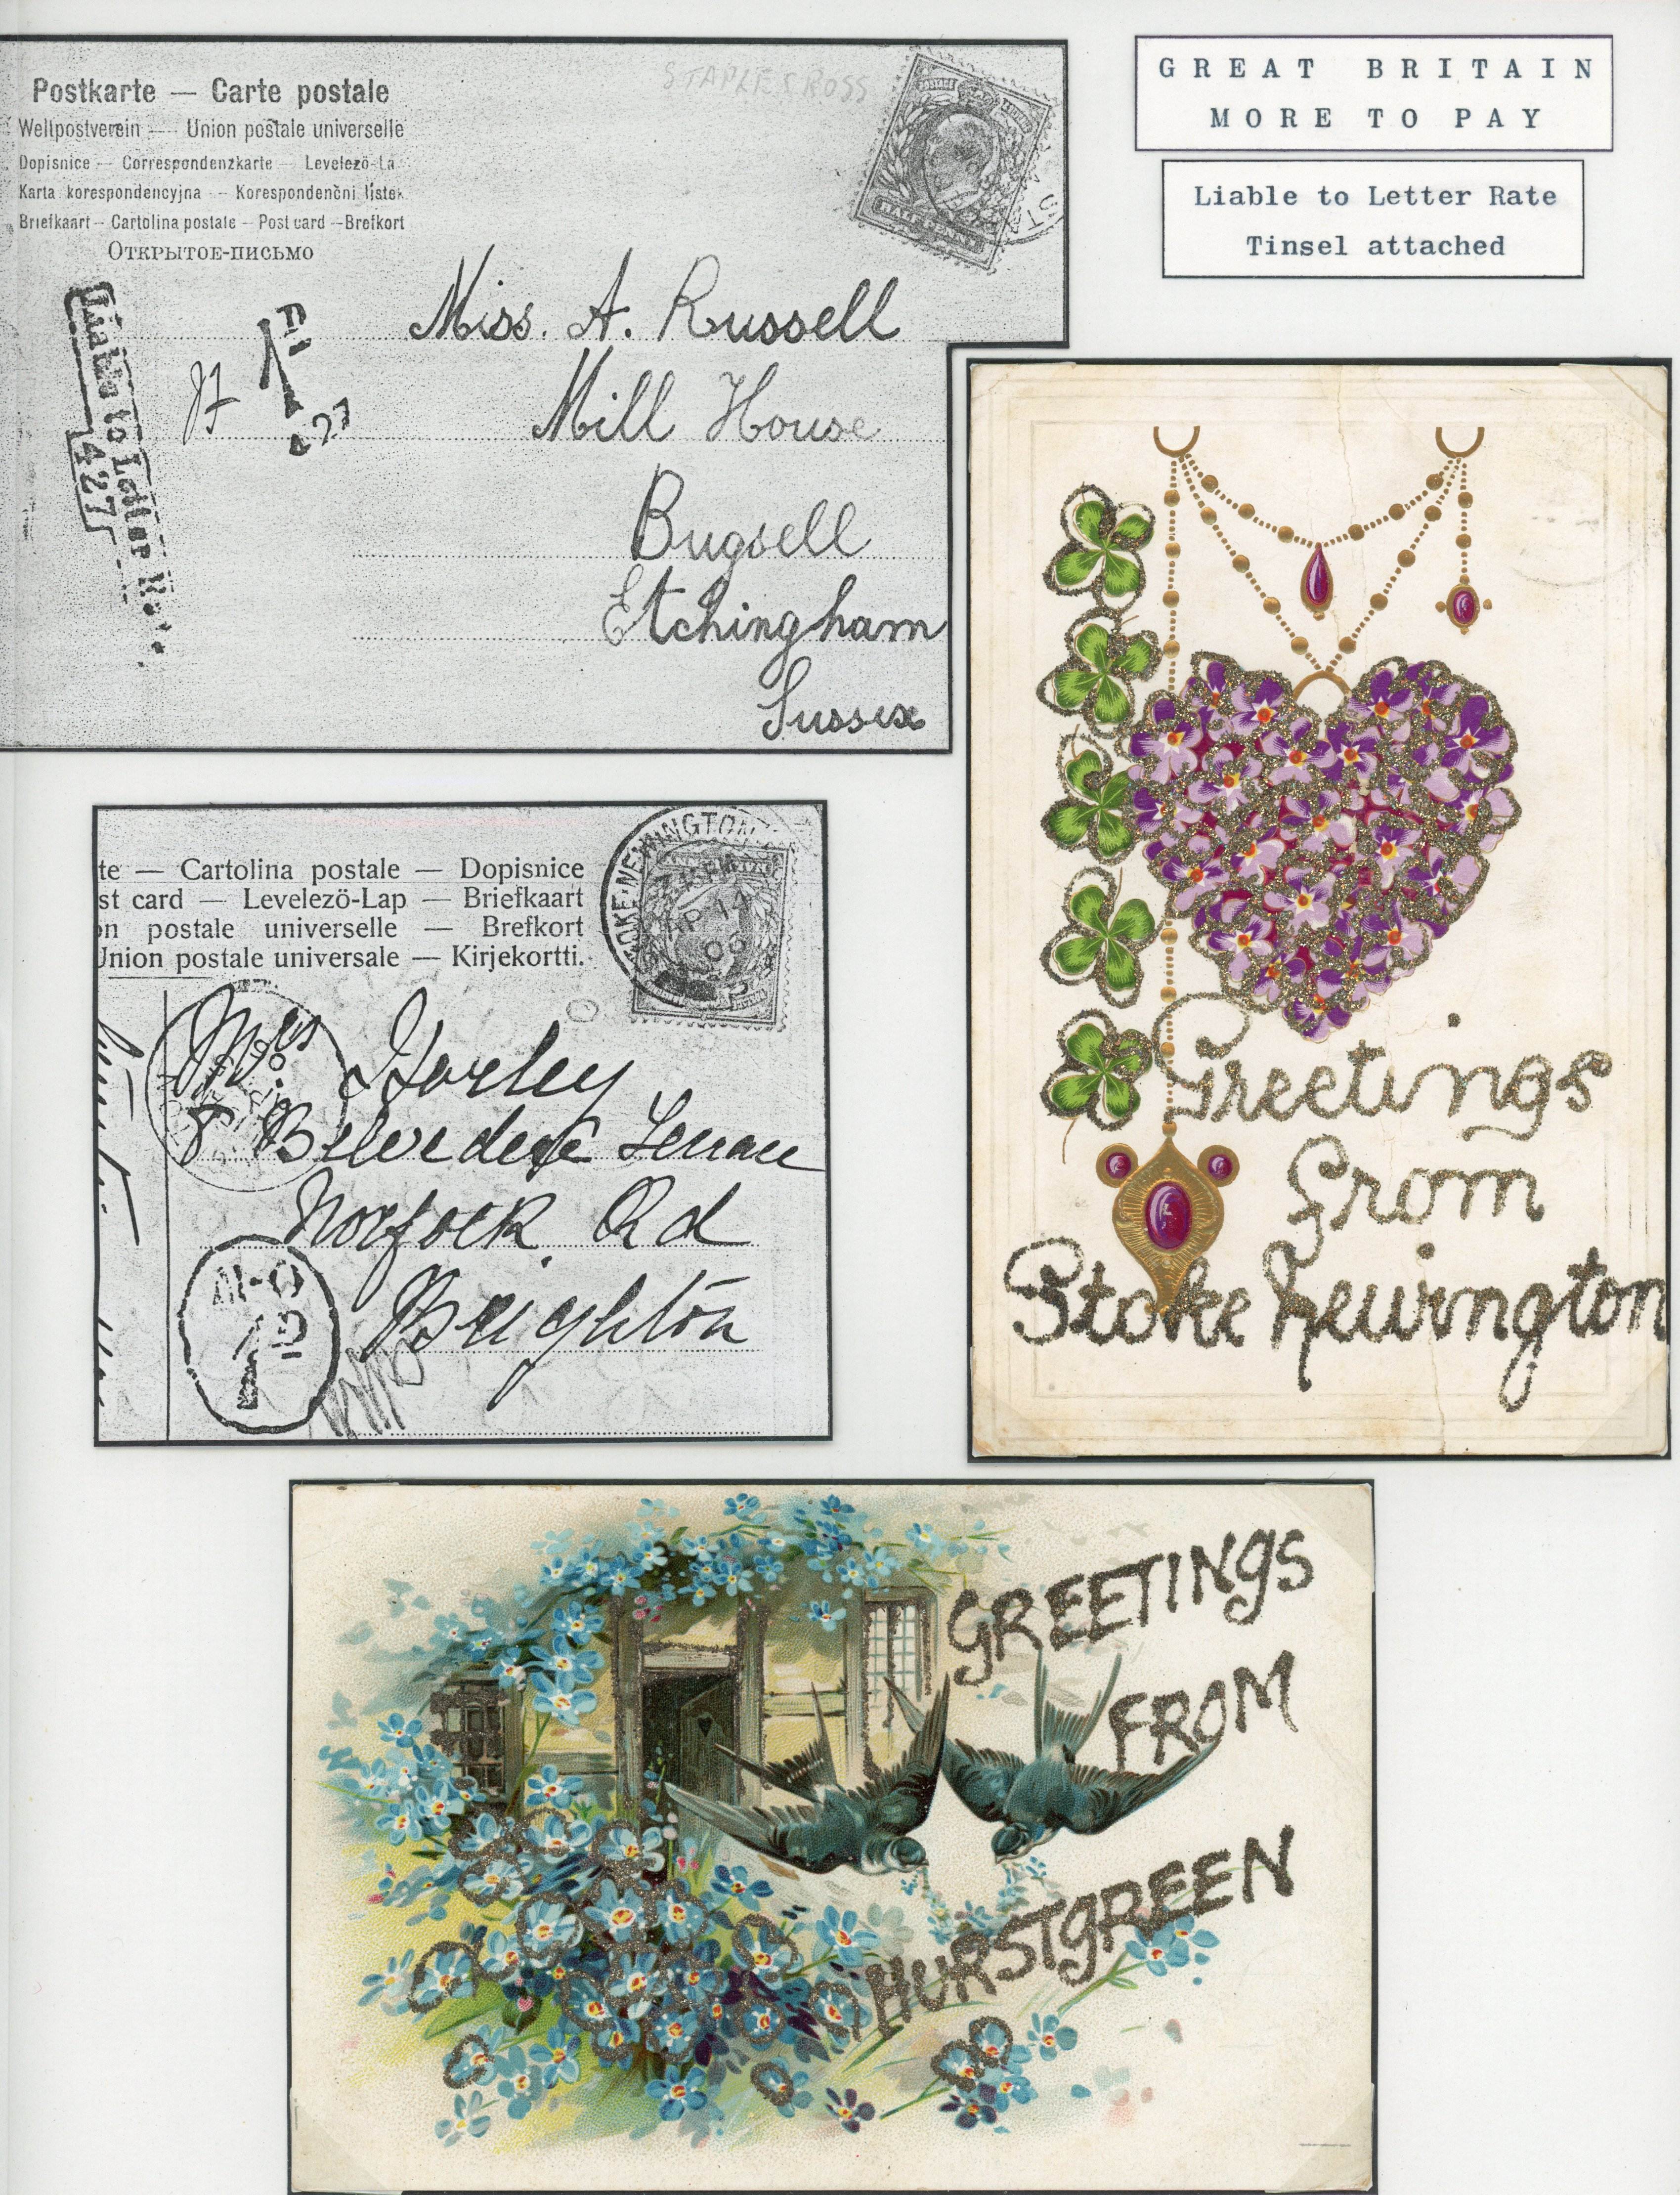 GREAT BRITAIN
MORE TO PAY
Liable to Letter Rate
Tinsel attached
STAPLECROSS
Postkarte — Carte postale
Weltpostverein — Union postale universelle
Dopisnice — Correspondenzkarte — Levelezö-La
Karta korespondencyjna — Korespondenční lístek
Briefkaart — Cartolina postale — Post card — Brefkort
Открытое-письмо
HALFPENNY
Miss. A. Russell
Mill House
Bugsell
Etchingham
Sussex
Liable to Letter R
427
1D
427
te — Cartolina postale — Dopisnice
st card — Levelezö-Lap — Briefkaart
on postale universelle — Brefkort
Union postale universale — Kirjekortti.
OKE-NEWINGTON
AP 14
06
Mrs Horley
8 Belvedere Terrace
Norfolk Rd
Brighton
1D
Greetings
from
Stoke Newington
GREETINGS
FROM
HURSTGREEN